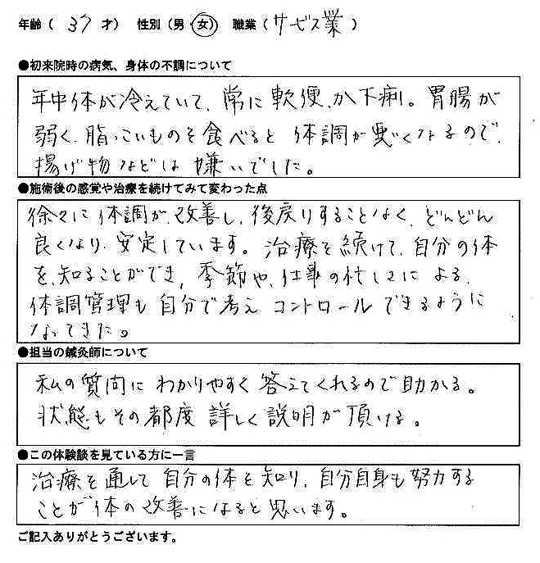 年齢（ 37 才） 性別（男・女） 職業（サービス業）
●初来院時の病気、身体の不調について
年中体が冷えていて、常に軟便か下痢。胃腸が
弱く、脂っこいものを食べると体調が悪くなるので、
揚げ物などは嫌いでした。
●施術後の感覚や治療を続けてみて変わった点
徐々に体調が改善し、後戻りすることなく、どんどん
良くなり、安定しています。治療を続けて、自分の体
を知ることができ、季節や、仕事の忙しさによる、
体調管理も自分で考えコントロールできるように
なってきた。
●担当の鍼灸師について
私の質問にわかりやすく答えてくれるので助かる。
状態もその都度詳しく説明が頂ける。
●この体験談を見ている方に一言
治療を通して自分の体を知り、自分自身も努力する
ことが体の改善になると思います。
ご記入ありがとうございます。